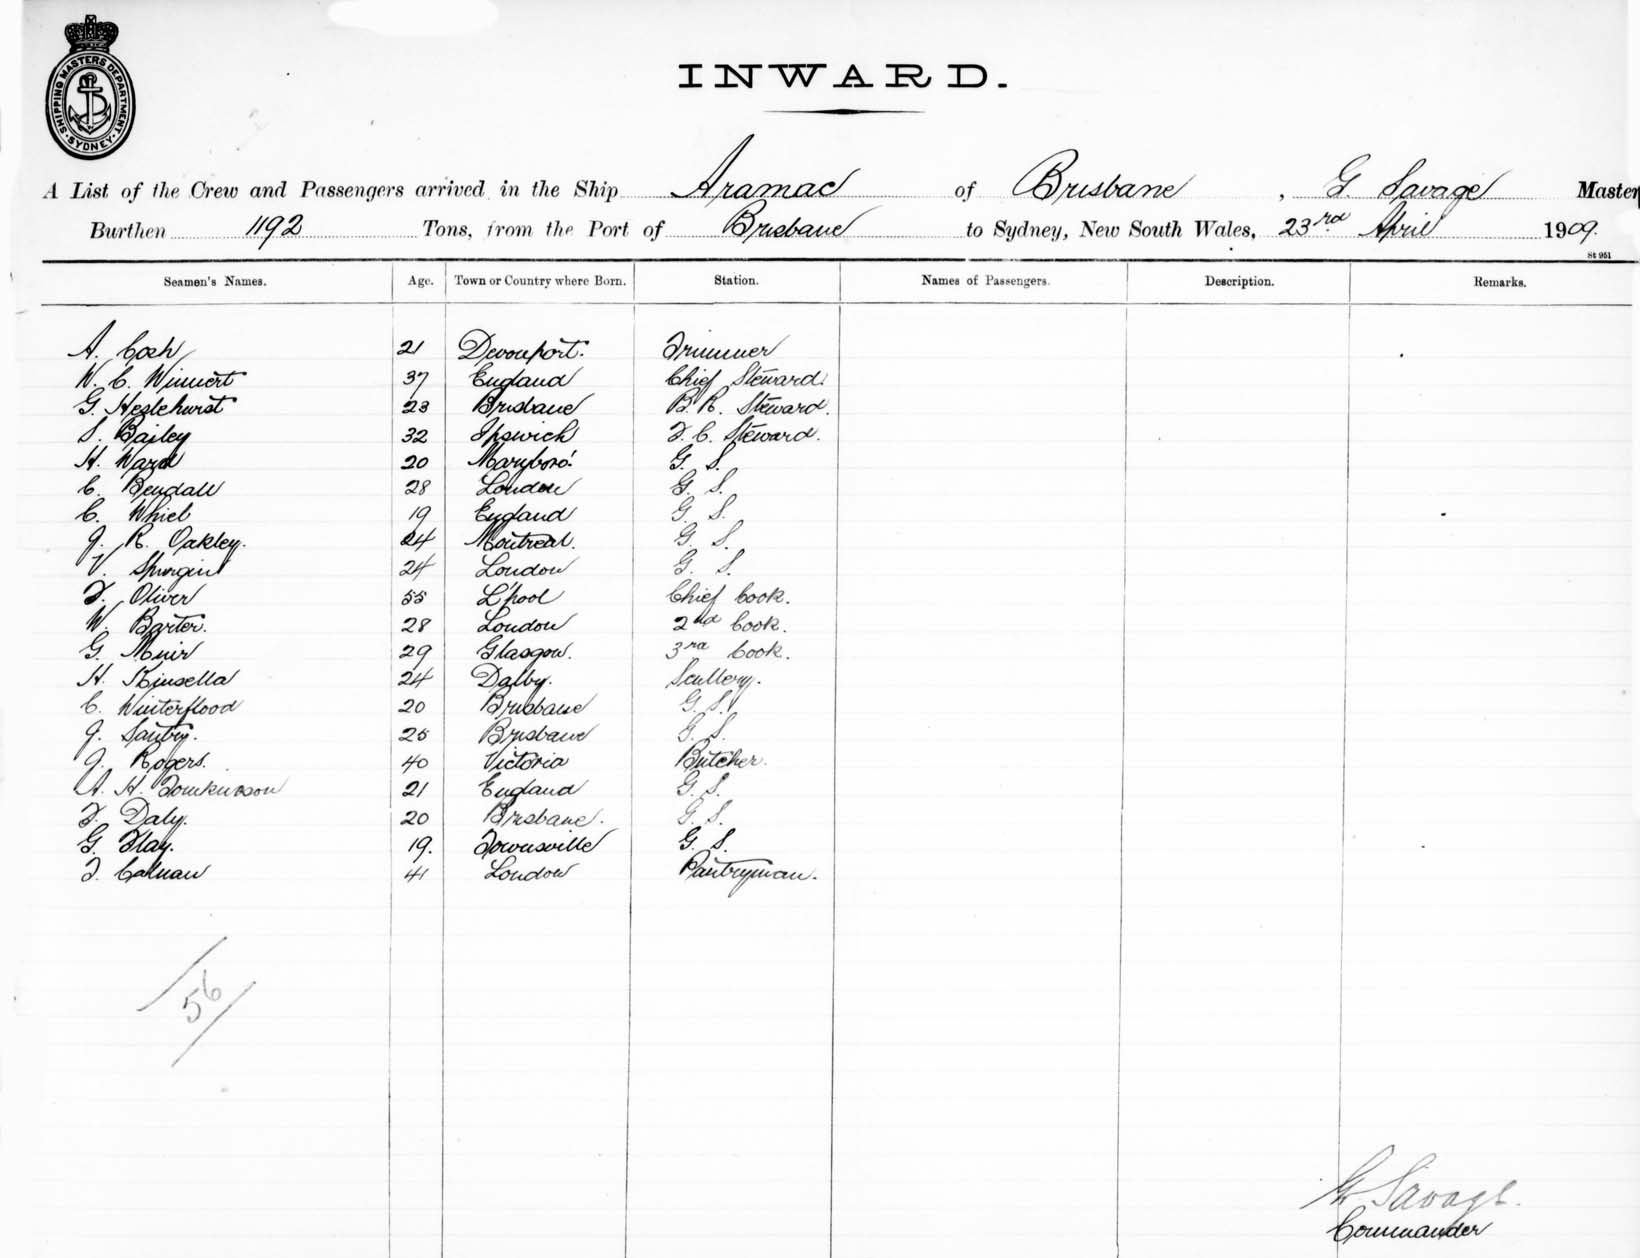 SHIPPING MASTERS DEPARTMENT
SYDNEY
INWARD.
A List of the Crew and Passengers arrived in the Ship Aramac of Brisbane, G. Savage Master
Burthen 1192 Tons, from the Port of Brisbane to Sydney, New South Wales, 23rd April 1909.
St 951
Seamen's Names. Age. Town or Country where Born. Station. Names of Passengers. Description. Remarks.
A. 21 Devonport. Trimmer
W. C. Winnert 37 England Chief Steward.
G. Heslehurst 23 Brisbane B. R. Steward.
S. Bailey 32 Ipswich F. C. Steward.
H. Ward 20 Maryboro'. G. S.
C. Bendall 28 London G. S.
C. 19 England G. S.
J. R. Oakley. 24 Montreal. G. S.
V. Spurgin 24 London G. S.
F. Oliver 55 L'pool Chief Cook.
W. Barter. 28 London 2nd Cook.
G. Muir 29 Glasgow. 3rd Cook.
H. Kinsella 24 Dalby. Scullery.
C. Winterflood 20 Brisbane G. S.
J. Santry. 25 Brisbane G. S.
J. Rogers. 40 Victoria Butcher.
A. H. Tomkinson 21 England G. S.
F. Daly. 20 Brisbane. G. S.
G. Flay. 19. Townsville G. S.
F. Calnan 41 London Pantryman.
56
G. Savage.
Commander